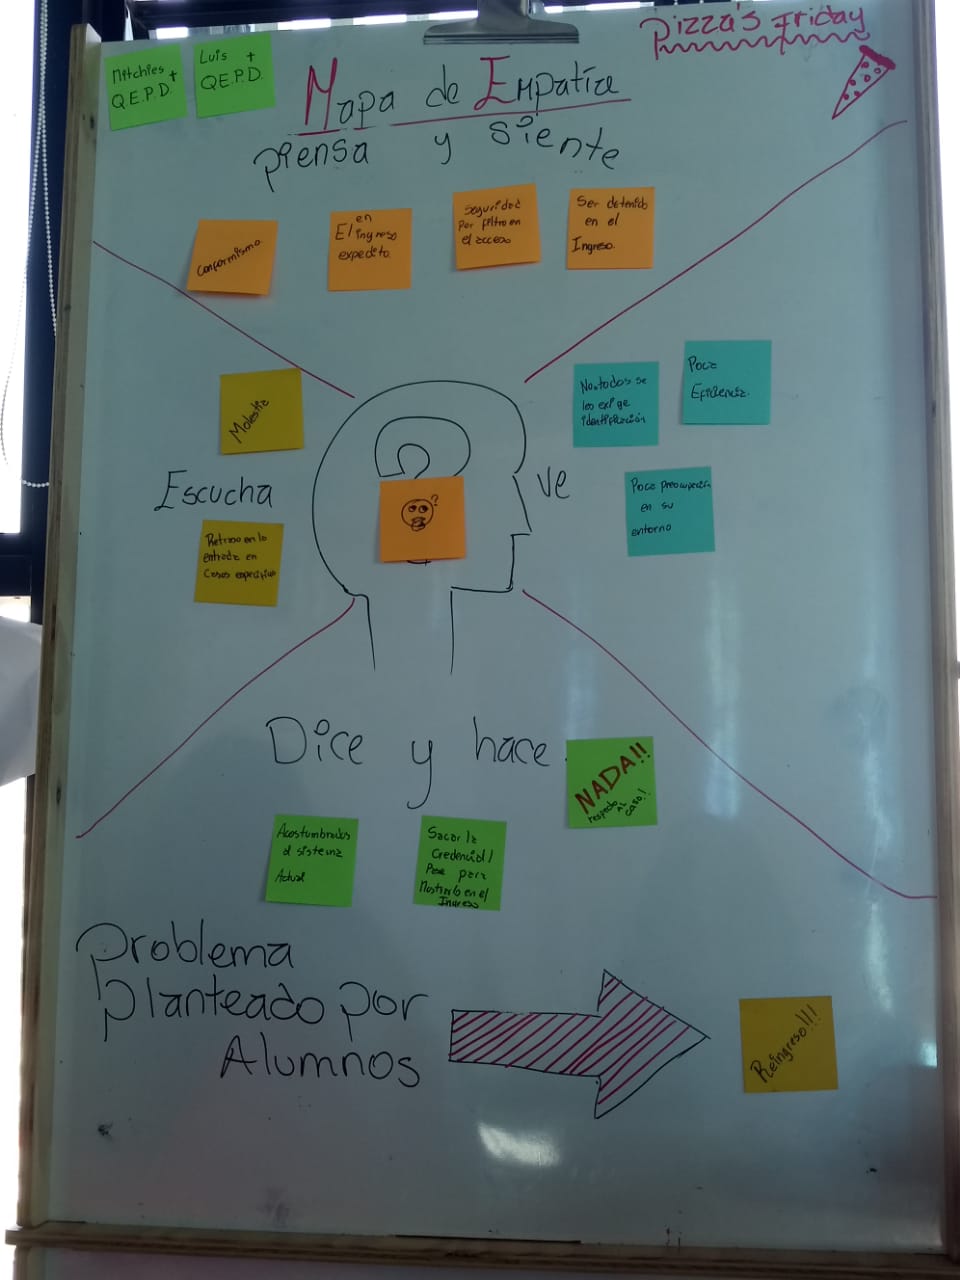 Mitchies +
Q.E.P.D.
Luis +
Q.E.P.D.
Pizza's Friday
Mapa de Empatía
piensa y siente
Conformismo.
en
El ingreso
expedito.
Seguridad
Por filtro en
el acceso
Ser detenido
en el
Ingreso.
Molestia
Escucha
Retraso en lo
entrada en
Casos específicos
?
ve
No todos se
les exige
identificación
Poca
Eficiencia.
Poca preocupación
en su
entorno
Dice y hace.
NADA!!
respecto
AL
caso!
Acostumbrados
al sistema
Actual
Sacar la
Credencial/
Pase para
Mostrarlo en el
Ingreso
Problema
planteado por
Alumnos
Reingreso!!!